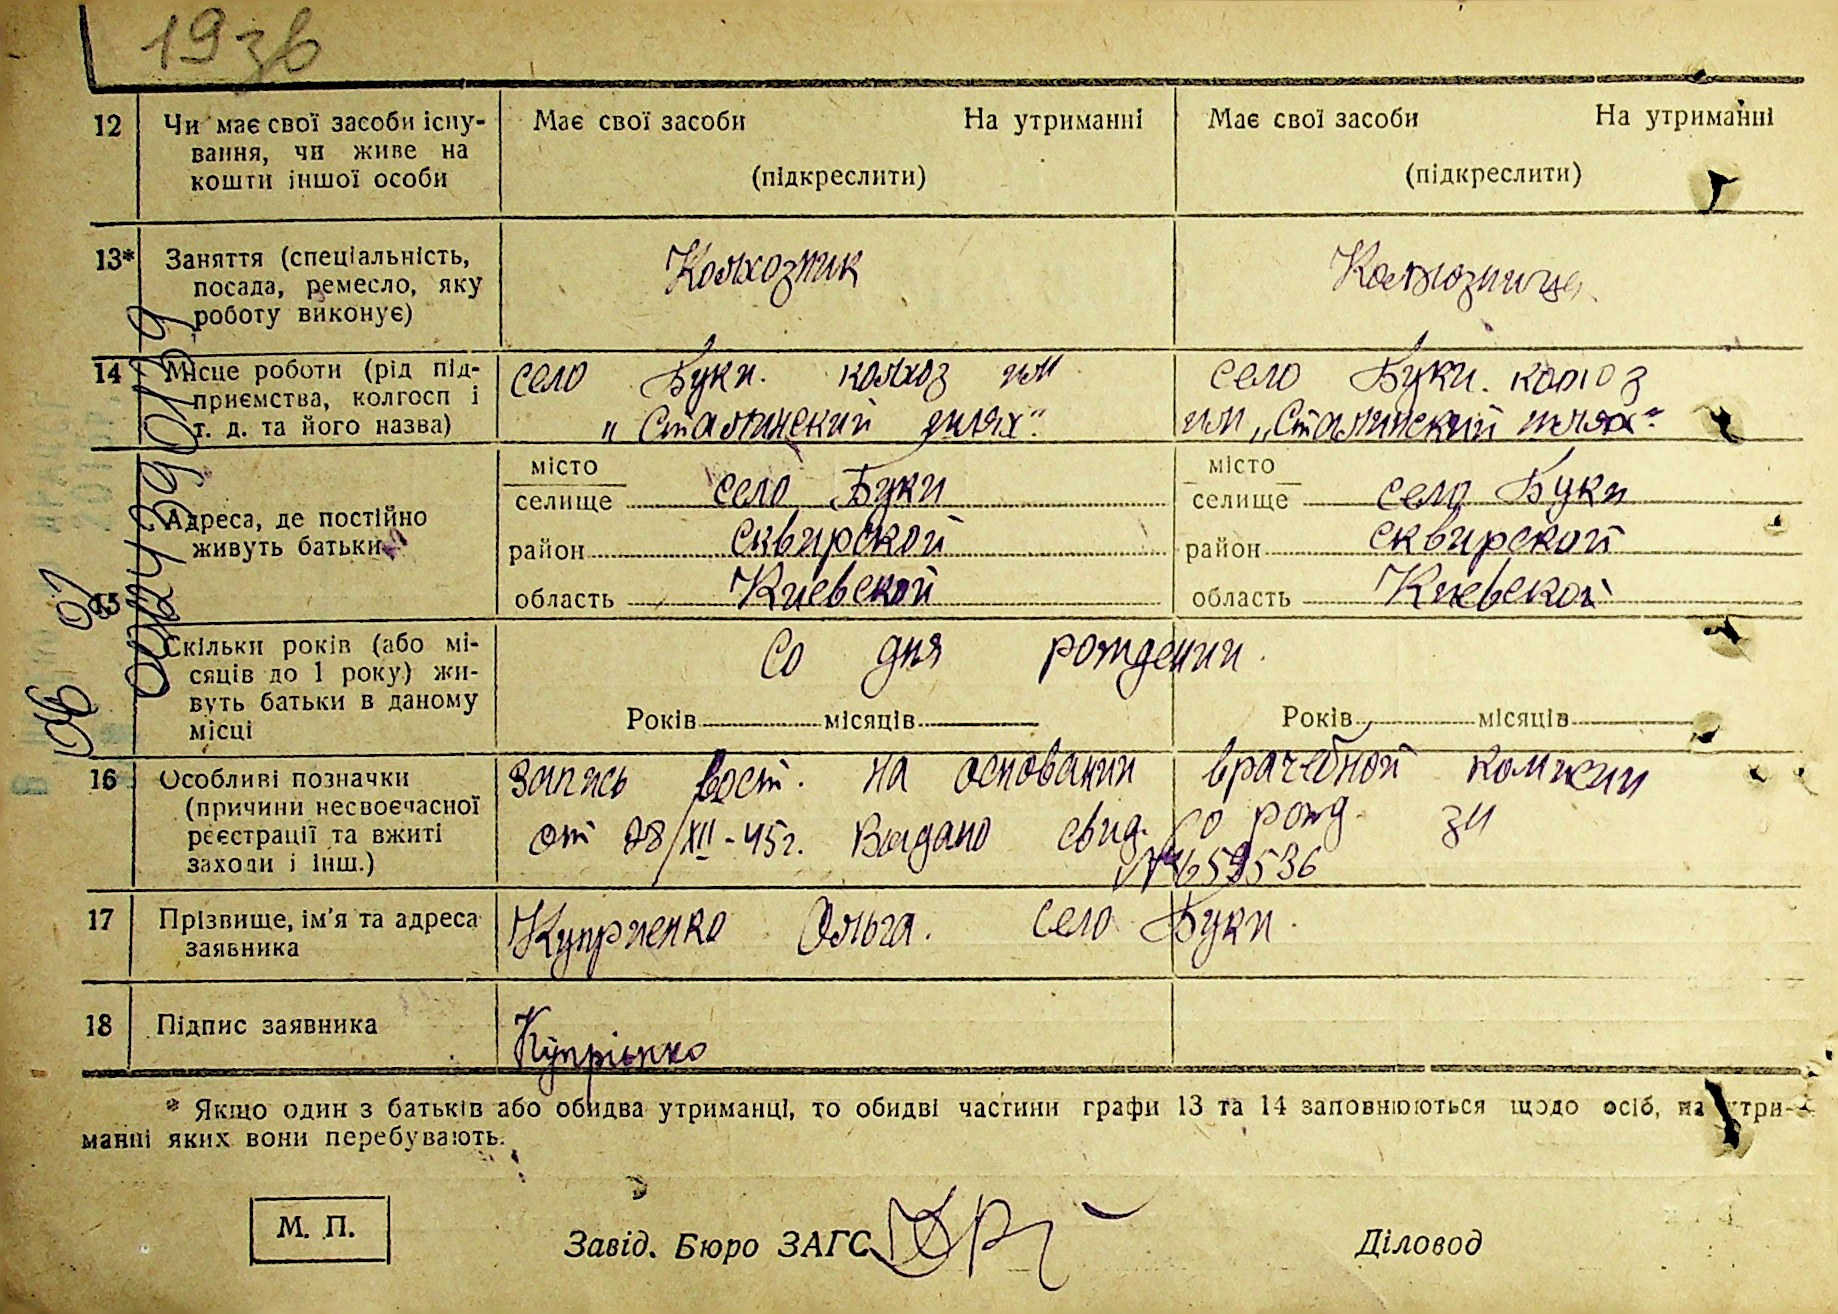 19зв
12 Чи має свої засоби існу- Має свої засоби На утриманні Має свої засоби На утриманні
вання, чи живе на
кошти іншої особи (підкреслити) (підкреслити)
13* Заняття (спеціальність, Колхозник Колхозница
посада, ремесло, яку
роботу виконує)
14 Місце роботи (рід під- село Буки. колхоз им село Буки. колхоз
приємства, колгосп і
т. д. та його назва) „Сталинский шлях". им „Сталинский шлях"
місто місто
селище село Буки селище село Буки
Адреса, де постійно
живуть батьки
район сквирской район сквирской
15 область Киевской область Киевской
Скільки років (або мі- Со дня рождении.
сяців до 1 року) жи-
вуть батьки в даному
місці Років місяців Років місяців
16 Особливі позначки запись вост. на основании врачебной комисии
(причини несвоєчасної
реєстрації та вжиті от 28/XII-45г. Выдано свид. о рожд. зи
заходи і інш.) №659536
17 Прізвище, ім'я та адреса Куприенко Ольга. село Буки.
заявника
18 Підпис заявника Купрієнко
* Якщо один з батьків або обидва утриманці, то обидві частини графи 13 та 14 заповнюються щодо осіб, на утри-
манні яких вони перебувають.
М. П. Завід. Бюро ЗАГС Діловод